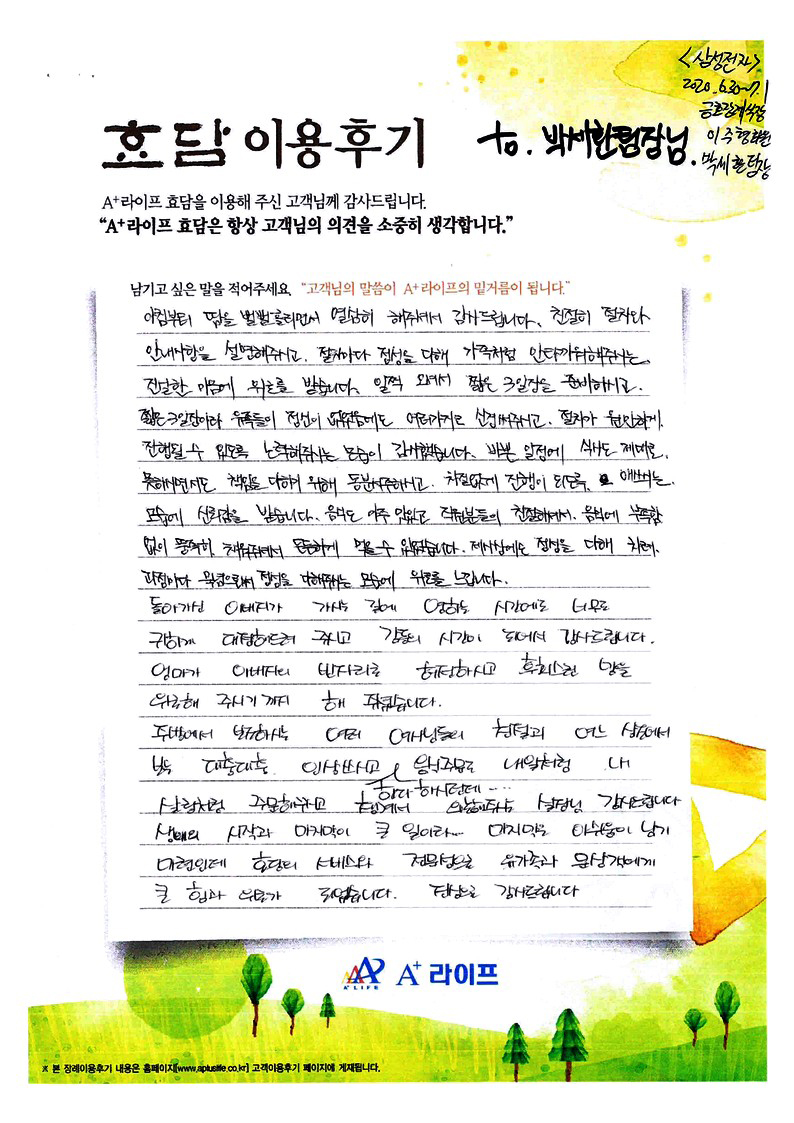 <삼성전자>
2020. 6.30~7.1
금호장례식장
이주형회원
박세환팀장
효담 이용후기 to. 박세환팀장님.
A+라이프 효담을 이용해 주신 고객님께 감사드립니다.
“A+라이프 효담은 항상 고객님의 의견을 소중히 생각합니다.”
남기고 싶은 말을 적어주세요. “고객님의 말씀이 A+라이프의 밑거름이 됩니다.”
아침부터 땀을 뻘뻘흘리면서 열심히 해주셔서 감사드립니다. 친절히 절차와
안내사항을 설명해주시고. 절차마다 정성을 다해 가족처럼 안타까워해주시는
진실한 마음에 위로를 받습니다. 일찍 와서 짧은 3일장을 준비하시고.
짧은 3일장이라 유족들이 정신이 없었음에도 여러가지로 신경써주시고. 절차가 원만하게.
진행될 수 있도록 노력해주시는 모습이 감사했습니다. 바쁜 일정에 식사도 제대로.
못하시면서도 책임을 다하기 위해 동분서주하시고. 차질없게 진행이 되도록. 애쓰시는.
모습에 신뢰감을 받습니다. 음식도 아주 맛있고 직원분들의 친절하셔서. 음식에 부족함
없이 풍족히 채워주셔서 든든하게 먹을수 있었습니다. 제사상에도 정성을 다해 차려.
과정마다 정성을 다해주시는 모습에 위로를 느낍니다.
돌아가신 아버지가 가시는 길에 시간에도 너무도
귀하게 대접해드려 주시고 감동의 시간이 되어서 감사드립니다.
엄마가 아버지의 빈자리로 허전하시고 맘을
위로해 주시기 까지 해 주셨습니다.
주방에서 봉사하시는 여러 여사님들의 친절과 여느 상가에서
보는 대충대충. 인상쓰시고 음식주문도 내일처럼 내
하다 하시던데 ....
살림처럼 주문해주고 실장님 감사드립니다
생애의 시작과 마지막이 큰 일이라... 마지막은 아쉬움이 남기
마련인데 효담의 서비스와 전문성으로 유가족과 문상객에게
큰 힘과 위로가 되었습니다. 진심으로 감사드립니다
A+ LIFE A+ 라이프
※ 본 장례이용후기 내용은 홈페이지[www.apluslife.co.kr] 고객이용후기 페이지에 게재됩니다.